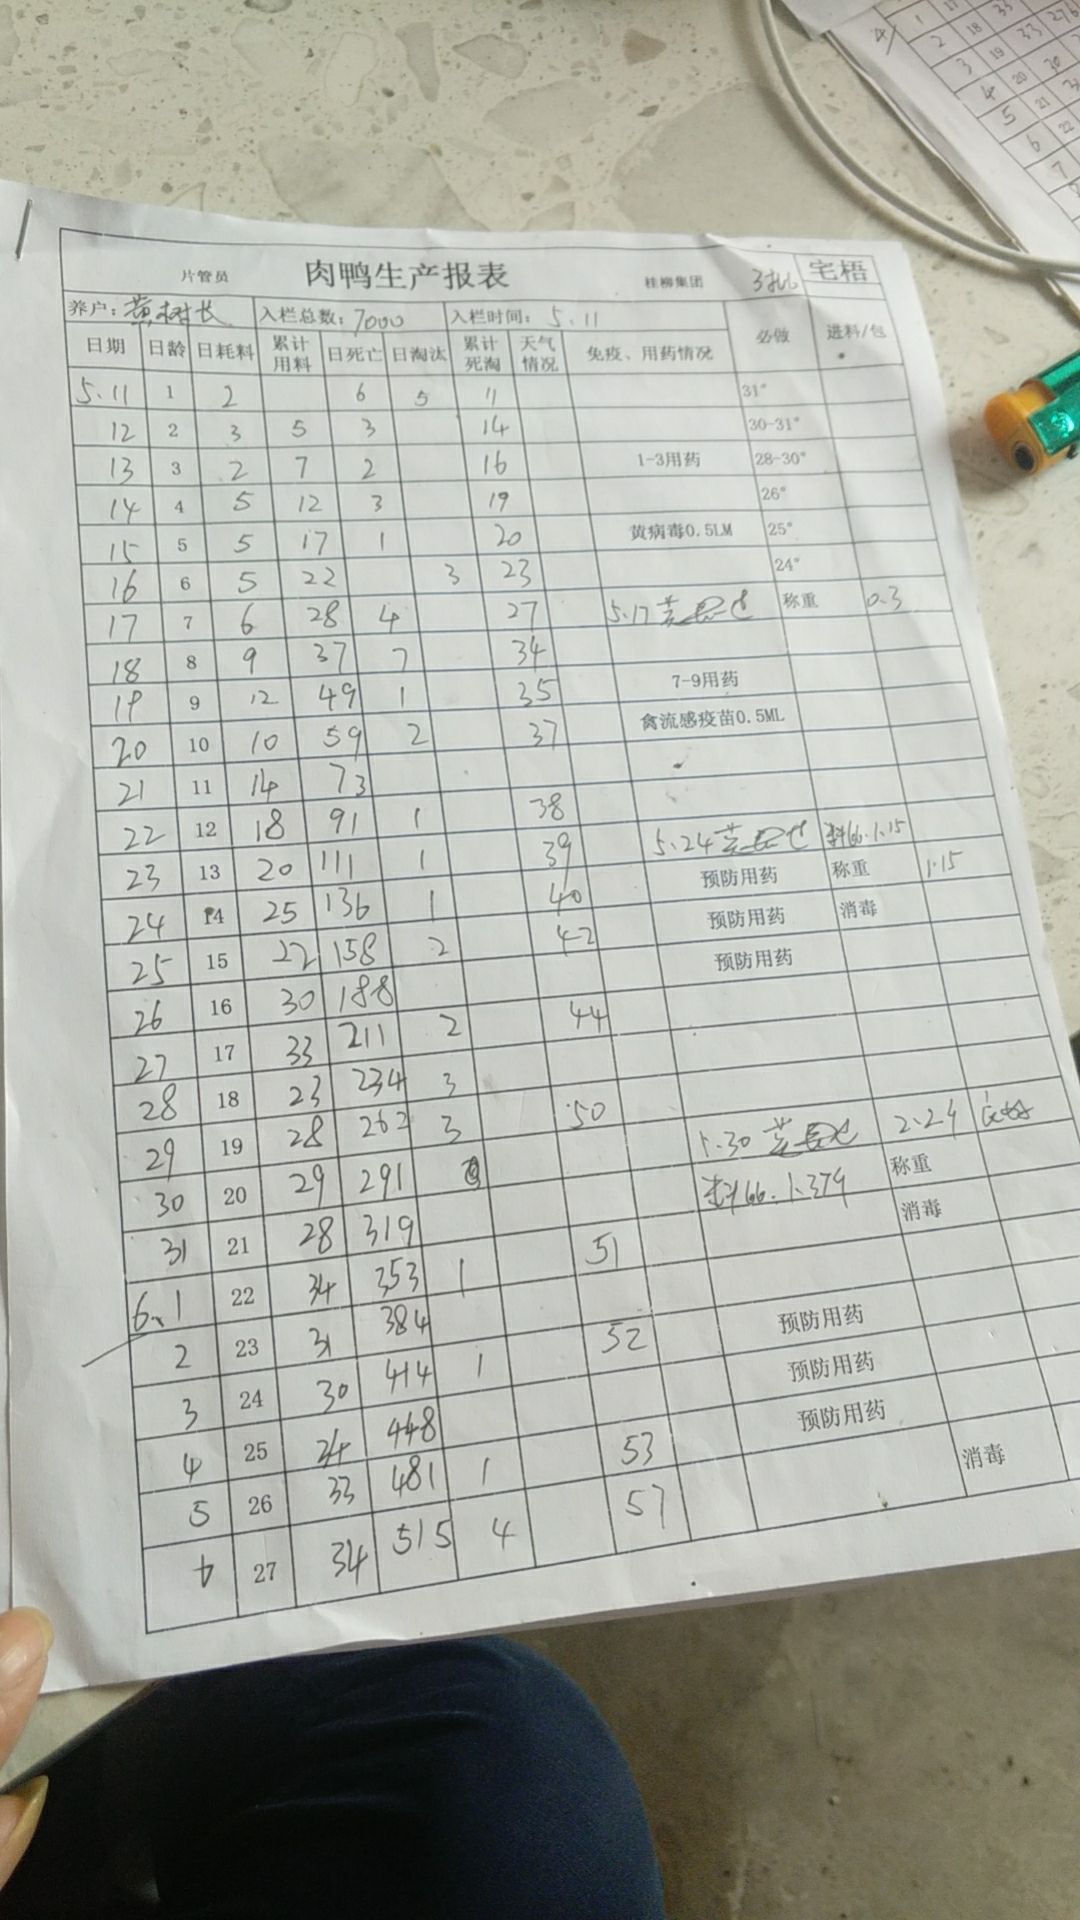 片管员 肉鸭生产报表 桂柳集团 3批 宅梧
养户：黄树长 入栏总数：7000 入栏时间：5.11 必做 进料/包
日期 日龄 日耗料 累计用料 日死亡 日淘汰 累计死淘 天气情况 免疫、用药情况
5.11 1 2 6 5 11 31°
12 2 3 5 3 14 30-31°
13 3 2 7 2 16 1-3用药 28-30°
14 4 5 12 3 19 26°
15 5 5 17 1 20 黄病毒0.5LM 25°
16 6 5 22 3 23 24°
17 7 6 28 4 27 5.17 称重 0.3
18 8 9 37 7 34
19 9 12 49 1 35 7-9用药
20 10 10 59 2 37 禽流感疫苗0.5ML
21 11 14 73
22 12 18 91 1 38
23 13 20 111 1 39 5.24 料66.1.15
24 14 25 136 1 40 预防用药 称重 1.15
25 15 22 158 2 42 预防用药 消毒
26 16 30 188 预防用药
27 17 33 211 2 44
28 18 23 234 3
29 19 28 262 3 50
30 20 29 291 5.30 2.24
31 21 28 319 料66.1.379 称重
6.1 22 34 353 1 51 消毒
2 23 31 384
3 24 30 414 1 52 预防用药
4 25 34 448 预防用药
5 26 33 481 1 53 预防用药
6 27 34 515 4 57 消毒
4 1 17 33
2 18 33 276
3 19 30
4 20
5 21
6 22
7